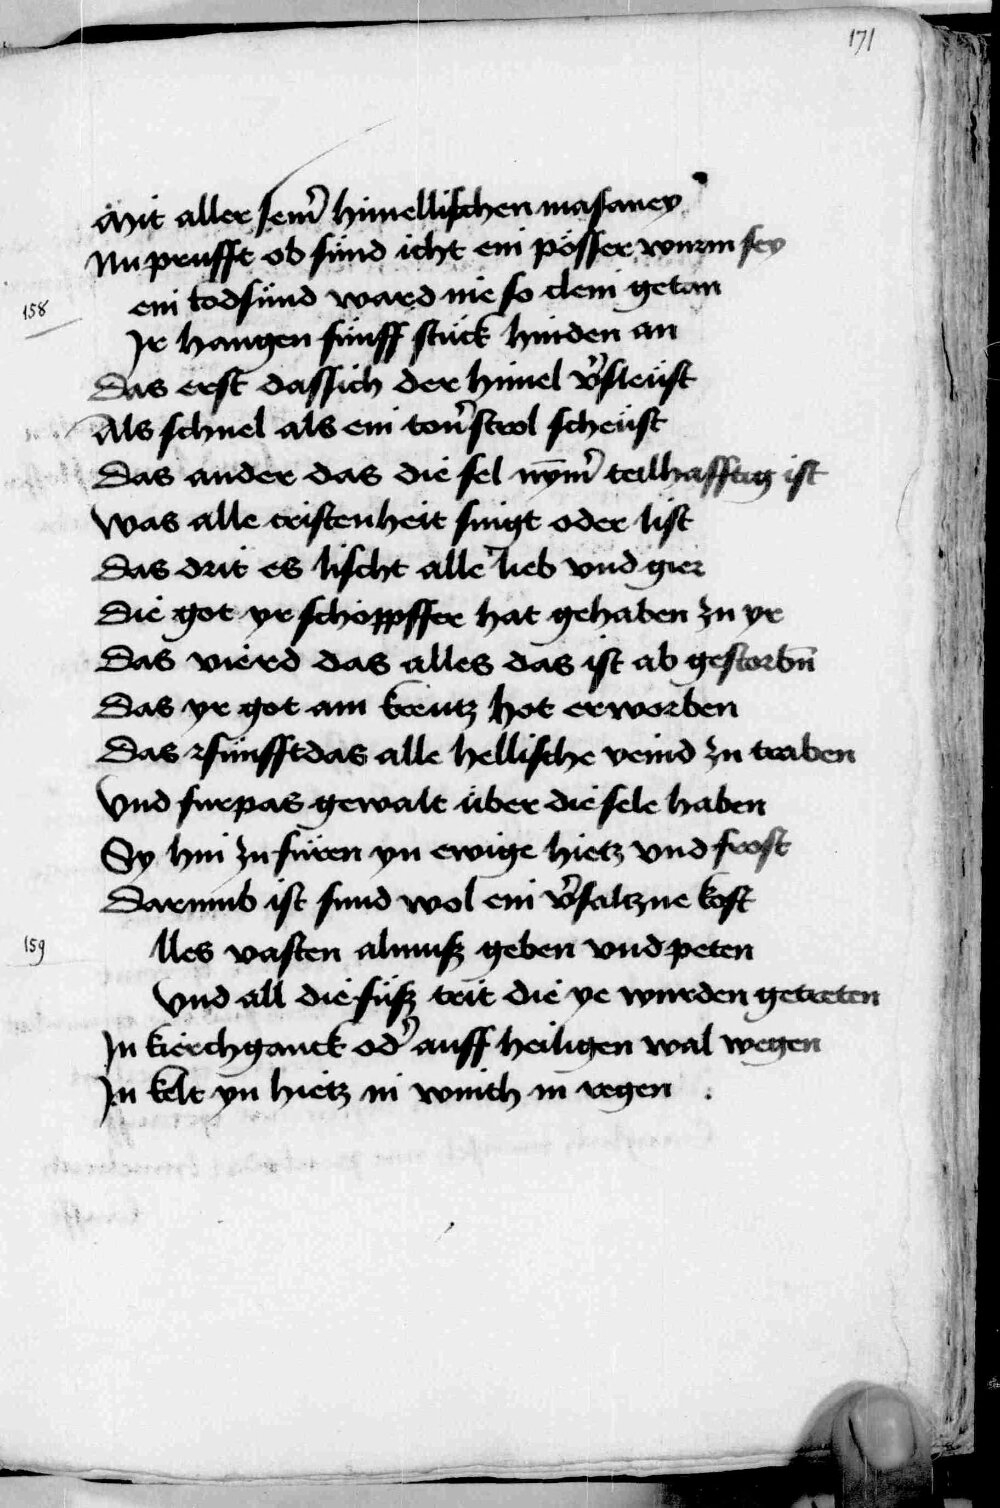 171
Mit aller sein̄ himellischen masaney
Nu prufft ob sünd icht ein pösser wurm sey
158
ein todsünd ward nie so clein getan
Ir hangen fünff stück hinden an
Das erst das sich der himel v̄sleüst
Als schnel als ein ton̄strol scheüst
Das ander das die sel nym̄ teilhafftig ist
Was alle cristenheit singt oder list
Das drit es lischt alle lieb vnd gier
Die got yr schöppffer hat gehaben zu yr
Das vierd das alles das ist ab gestorbn̄
Das yr got am kreutz hot erworben
Das fünfft das alle hellische veind zu traben
Vnd furpas gewalt über die sele haben
Sy hin zu füren yn ewige hietz vnd frost
Darumb ist sund wol ein v̄saltzne kost
159
lles vasten almusz geben vnd peten
Vnd all die füsz trit die ye wurden getreten
In kirchganck od̄ auff heiligen wal wegen
In kelt yn hietz in winth in regen